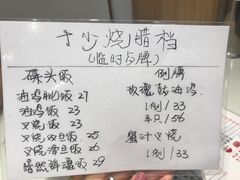 于少烧腊档
(临时手牌)
碟头饭
油鸡肶饭 27
油鸡饭 23
叉烧饭 23
叉烧双旦饭 25
叉烧滑旦饭 26
黯然销魂饭 29
例牌
玫瑰豉油鸡
1例/33
半只/56
蜜汁叉烧
1例/33